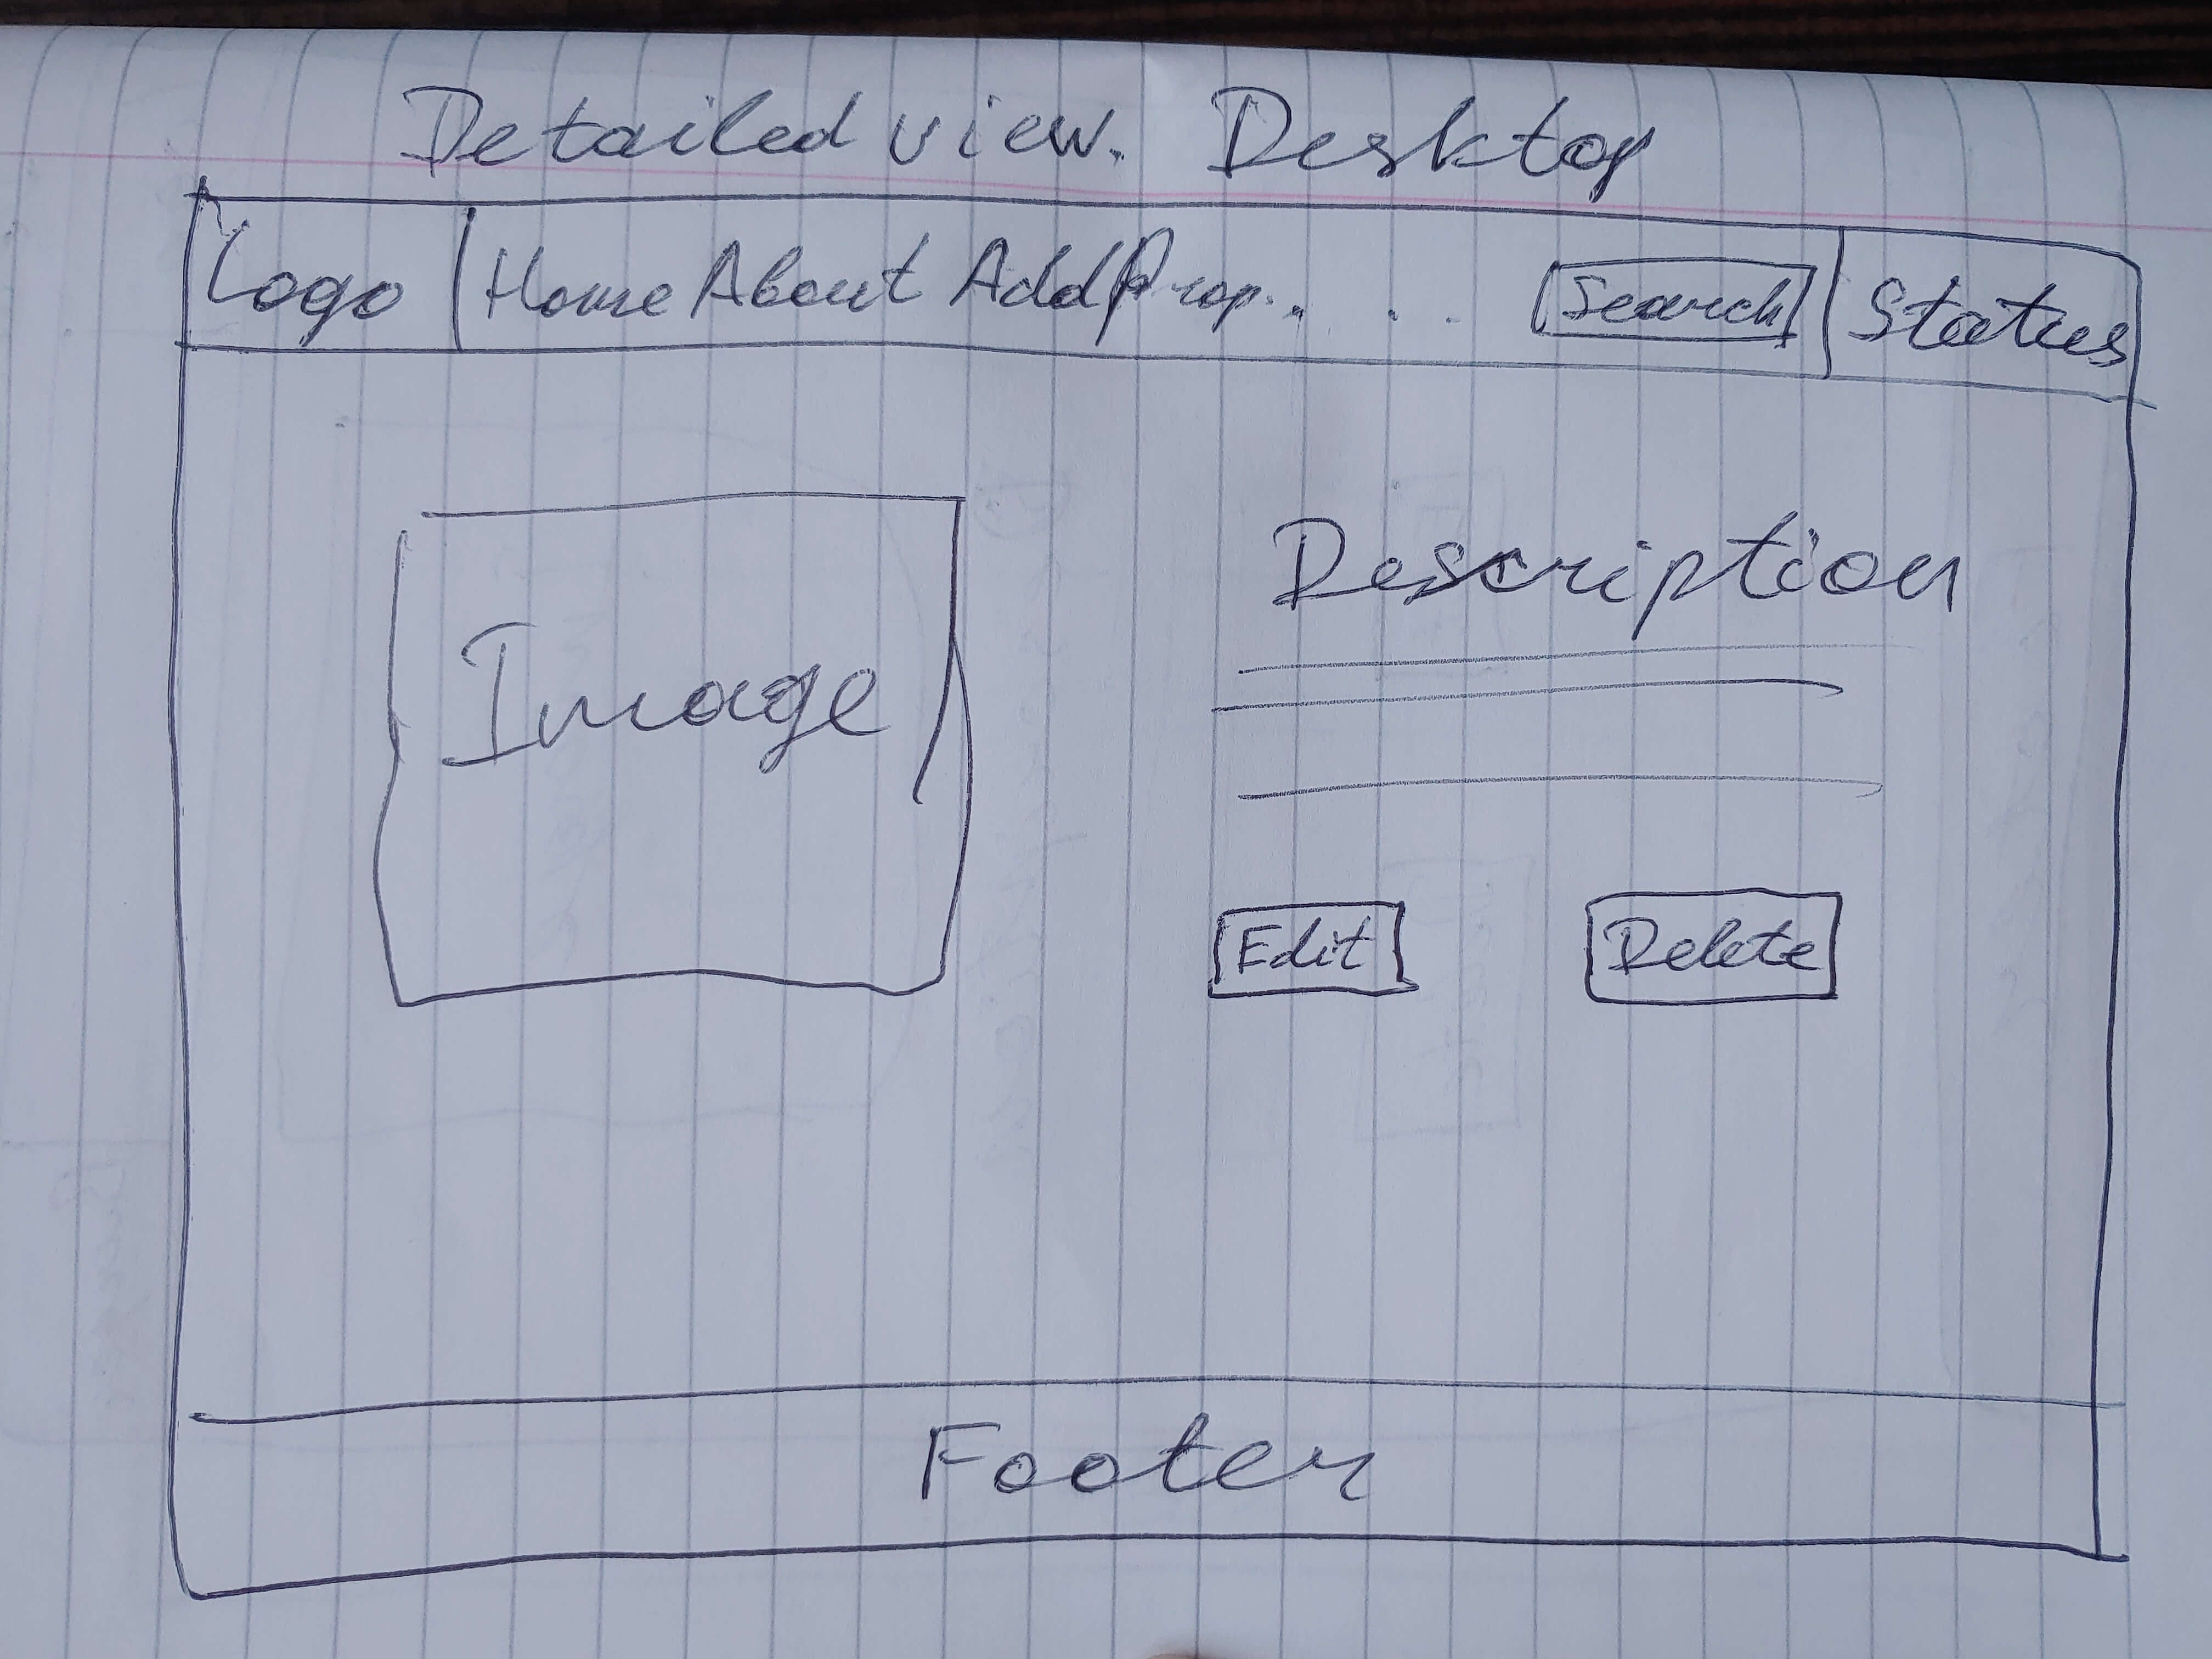 Detailed view. Desktop
Logo Home About Add Prop. . . . Search Status
Description
Image
Edit Delete
Footer